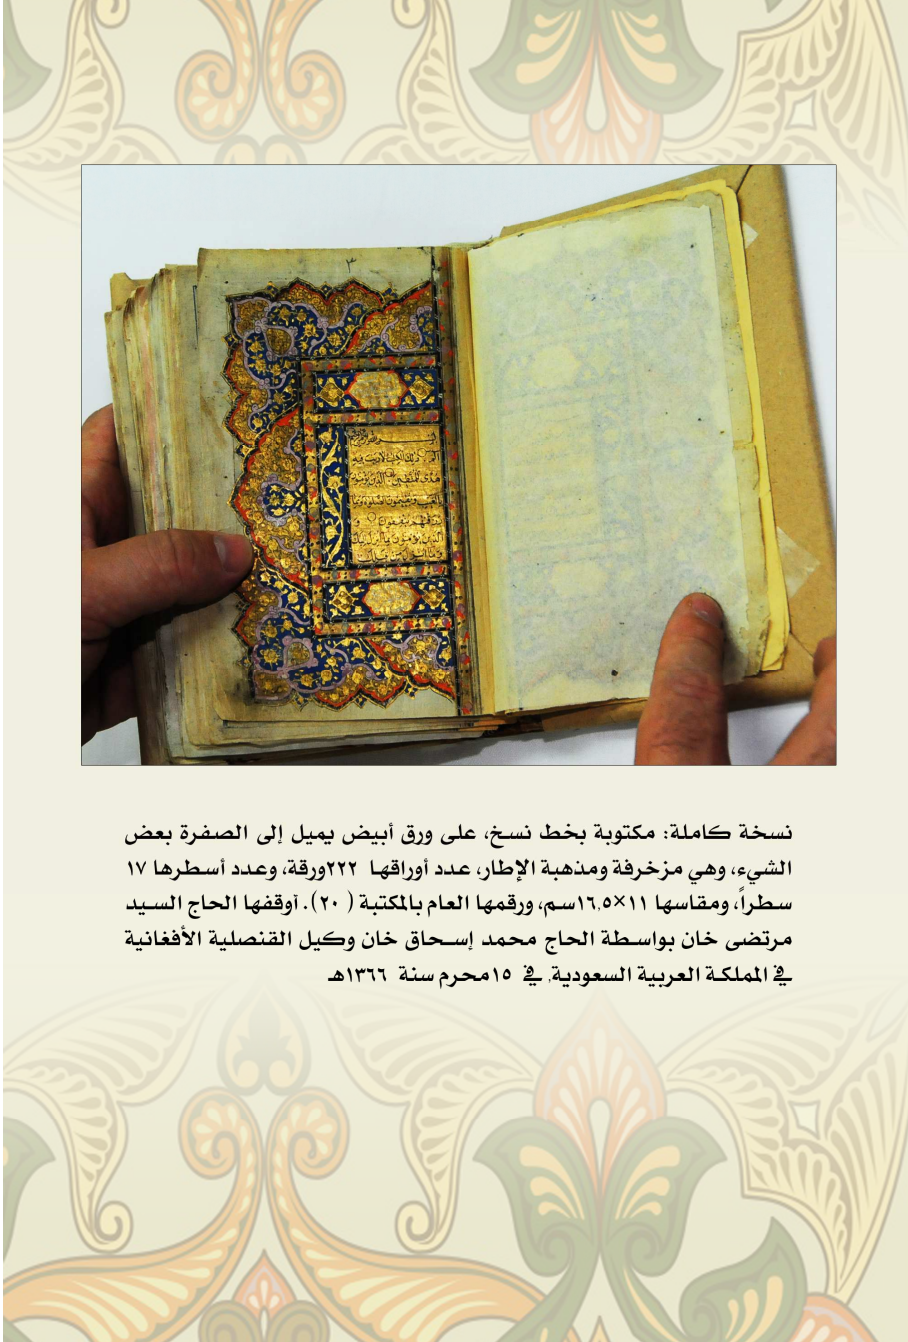 ٢
بسم الله الرحمن الرحيم
الم ذلك الكتاب لا ريب فيه
هدى للمتقين الذين يؤمنون
نسخة كاملة: مكتوبة بخط نسخ، على ورق أبيض يميل إلى الصفرة بعض
الشيء، وهي مزخرفة ومذهبة الإطار، عدد أوراقها ٢٢٢ورقة، وعدد أسطرها ١٧
سطراً، ومقاسها ١١×١٦,٥سم، ورقمها العام بالمكتبة ( ٢٠). أوقفها الحاج السيد
مرتضى خان بواسطة الحاج محمد إسحاق خان وكيل القنصلية الأفغانية
في المملكة العربية السعودية, في ١٥محرم سنة ١٣٦٦هـ